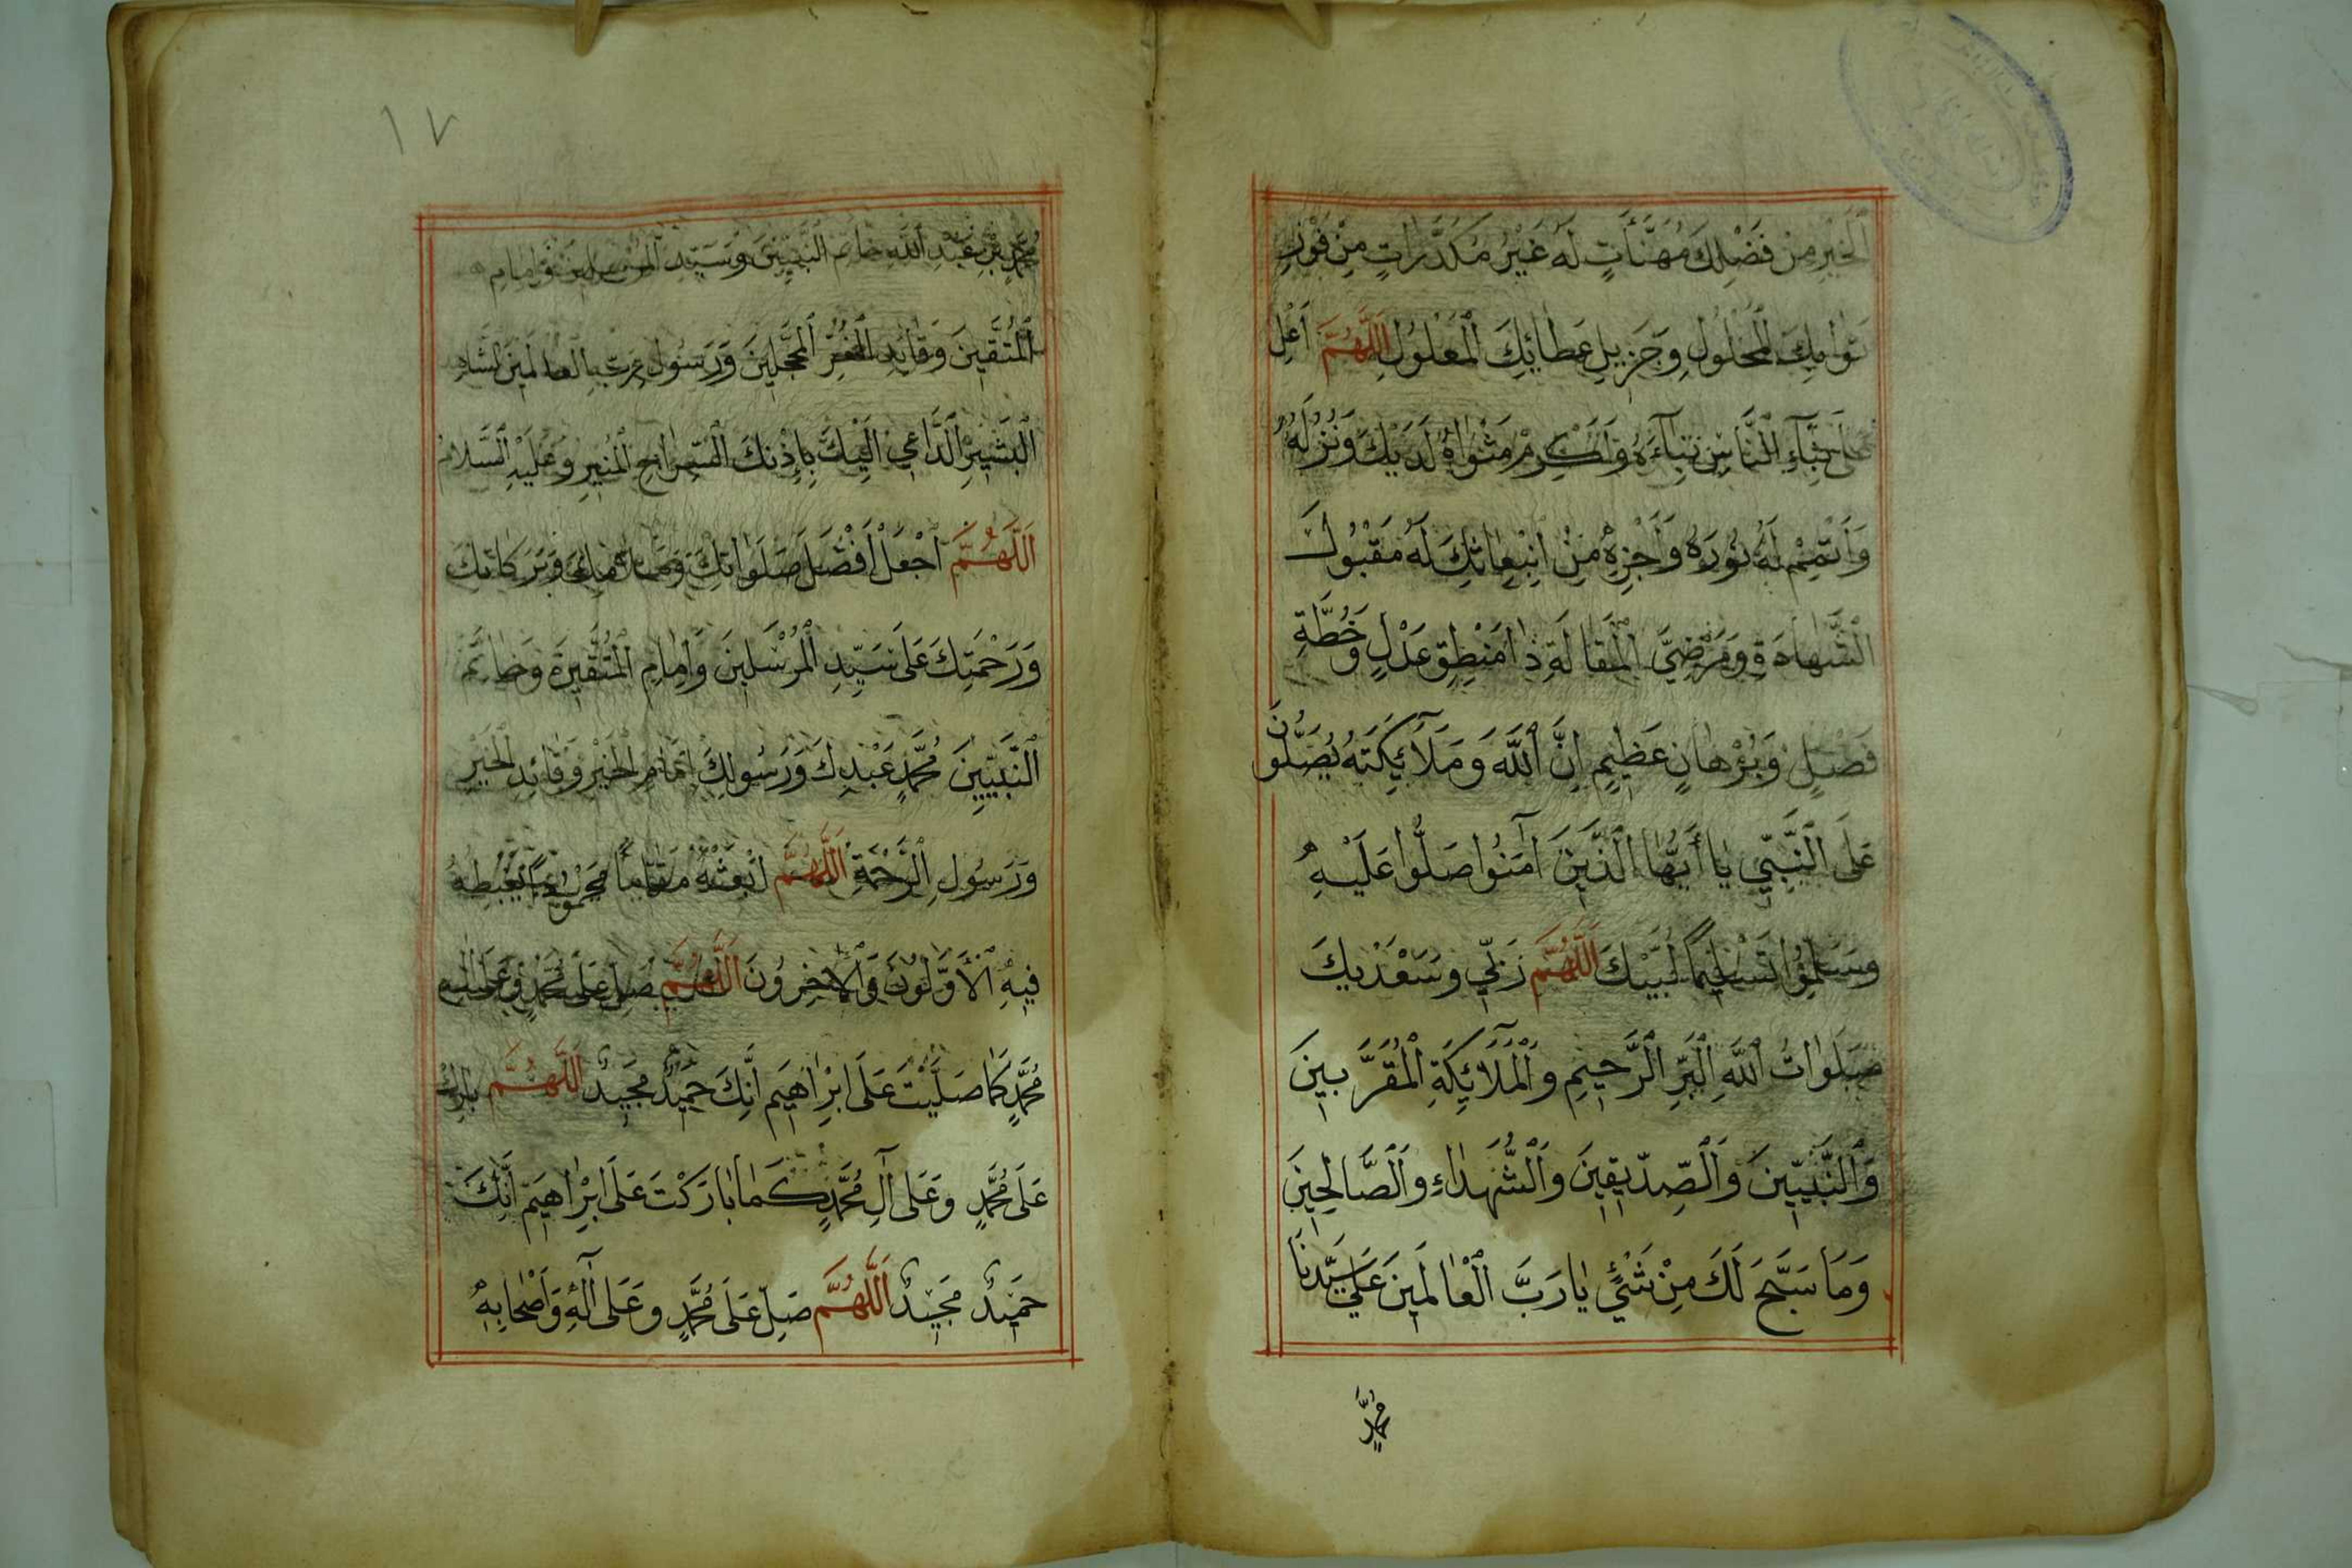 اَلْخَيْرِ مِنْ فَضْلِكَ مُهَنَّأَتٍ لَهُ غَيْرُ مُكَدَّرَاتٍ مِنْ فَوْزِ
ثَوٰابِكَ الْمَحْلُولِ وَجَزِيلِ عَطٰائِكَ الْمَعْلُولِ اَللّٰهُمَّ اَعْلِ
عَلَى بِنَآءِ النَّاسِ بِنَآءَهُ وَاَكْرِمْ مَثْوٰاهُ لَدَيْكَ وَنُزُلَهُ
وَأَتْمِمْ لَهُ نُورَهُ وَأَجْزِهِ مِنْ اِبْتِعٰاثِكَ لَهُ مَقْبُولَ
الشَّهٰادَةِ وَمَرْضِيَّ الْمَقٰالَةِ ذٰا مَنْطِقٍ عَدْلٍ وَخُطَّةِ
فَصْلٍ وَبُرْهٰانٍ عَظِيمٍ اِنَّ اللّٰهَ وَمَلَآئِكَتَهُ يُصَلُّونَ
عَلَى النَّبِيِّ يٰا أَيُّهٰا الَّذِينَ آمَنُوا صَلُّوا عَلَيْهِ
وَسَلِّمُوا تَسْلِيمًا لَبَّيْكَ اَللّٰهُمَّ رَبِّي وَسَعْدَيْكَ
صَلَوٰاتُ اللّٰهِ الْبَرِّ الرَّحِيمِ وَالْمَلَآئِكَةِ الْمُقَرَّبِينَ
وَالنَّبِيِّينَ وَالصِّدِّيقِينَ وَالشُّهَدٰاءِ وَالصَّالِحِينَ
وَمَا سَبَّحَ لَكَ مِنْ شَيْءٍ يٰا رَبَّ الْعٰالَمِينَ عَلَى سَيِّدِنَا
مُحَمَّدٍ
١٧
مُحَمَّدِ بْنِ عَبْدِ اللّٰهِ خٰاتَمِ النَّبِيِّينَ وَسَيِّدِ الْمُرْسَلِينَ وَاِمٰامِ
الْمُتَّقِينَ وَقٰائِدِ الْغُرِّ الْمُحَجَّلِينَ وَرَسُولِ رَبِّ الْعٰالَمِينَ الشَّاهِدِ
الْبَشِيرِ الدَّاعِي اِلَيْكَ بِاِذْنِكَ السِّرٰاجِ الْمُنِيرِ وَعَلَيْهِ السَّلَامُ
اَللّٰهُمَّ اجْعَلْ أَفْضَلَ صَلَوٰاتِكَ وَبَرَكَاتِكَ
وَرَحْمَتِكَ عَلَى سَيِّدِ الْمُرْسَلِينَ وَاِمٰامِ الْمُتَّقِينَ وَخٰاتَمِ
النَّبِيِّينَ مُحَمَّدٍ عَبْدِكَ وَرَسُولِكَ اِمٰامِ الْخَيْرِ وَقٰائِدِ الْخَيْرِ
وَرَسُولِ الرَّحْمَةِ اَللّٰهُمَّ ابْعَثْهُ مَقٰامًا مَحْمُودًا يَغْبِطُهُ
فِيهِ الْأَوَّلُونَ وَالْآخِرُونَ اَللّٰهُمَّ صَلِّ عَلَى مُحَمَّدٍ وَعَلَى آلِ
مُحَمَّدٍ كَمٰا صَلَّيْتَ عَلَى اِبْرٰاهِيمَ اِنَّكَ حَمِيدٌ مَجِيدٌ اَللّٰهُمَّ بٰارِكْ
عَلَى مُحَمَّدٍ وَعَلَى آلِ مُحَمَّدٍ كَمٰا بٰارَكْتَ عَلَى اِبْرٰاهِيمَ اِنَّكَ
حَمِيدٌ مَجِيدٌ اَللّٰهُمَّ صَلِّ عَلَى مُحَمَّدٍ وَعَلَى آلِهِ وَأَصْحٰابِهِ